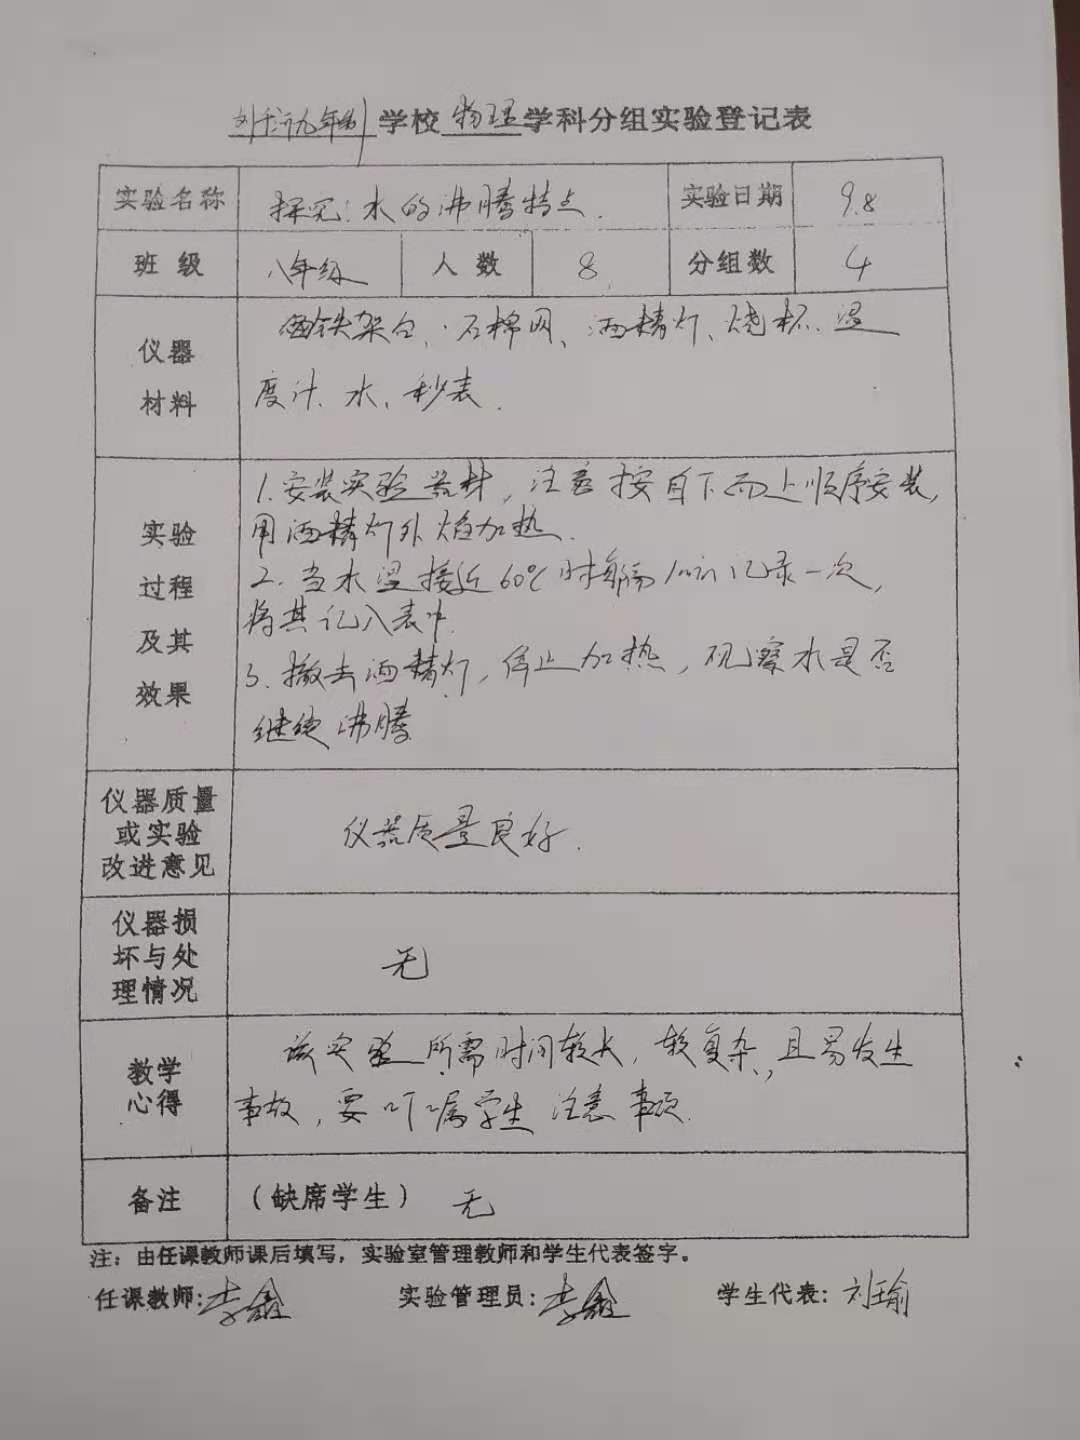 九年制学校物理学科分组实验登记表
实验名称 探究:水的沸腾特点. 实验日期 9.8
班 级 八年级 人 数 8 分组数 4
仪器
材料
铁架台、石棉网、酒精灯、烧杯、温
度计、水、秒表.
实验
过程
及其
效果
1.安装实验器材,注意按自下而上顺序安装,
用酒精灯外焰加热.
2.当水温接近60℃时每隔1min记录一次,
将其记入表中.
3.撤去酒精灯,停止加热,观察水是否
继续沸腾
仪器质量
或实验
改进意见
仪器质量良好.
仪器损
坏与处
理情况
无
教学
心得
该实验所需时间较长,较复杂,且易发生
事故,要叮嘱学生注意事项.
备注 (缺席学生) 无
注:由任课教师课后填写,实验室管理教师和学生代表签字。
任课教师:李鑫 实验管理员:李鑫 学生代表:刘瑜